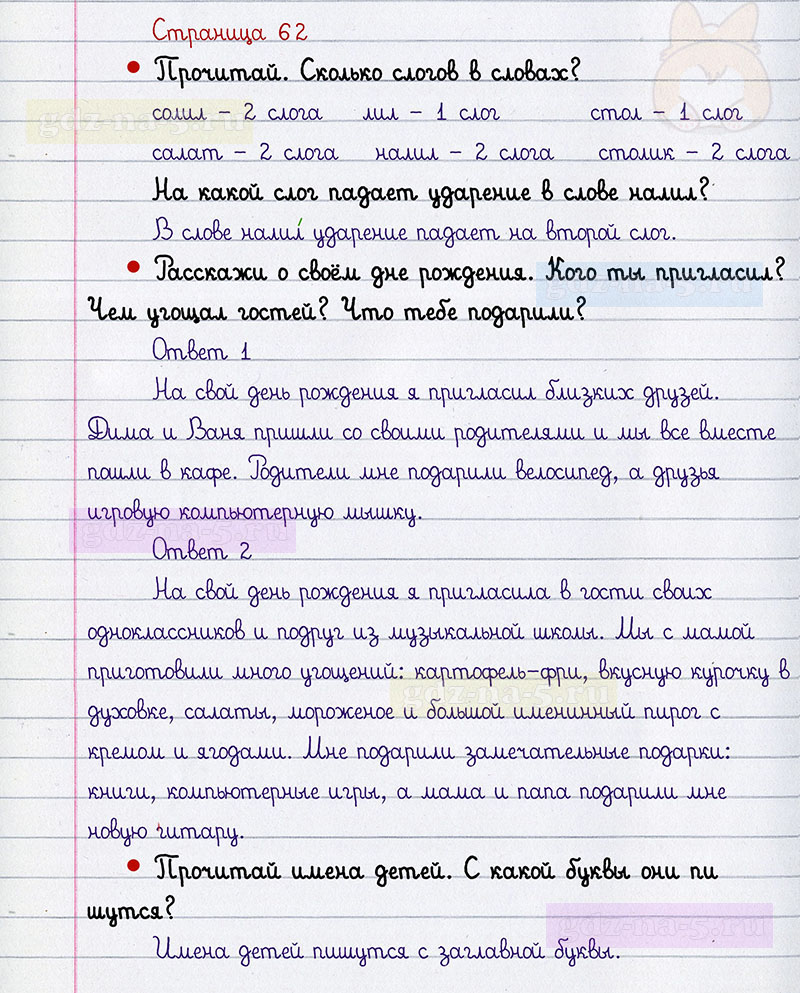 Страница 62
Прочитай. Сколько слогов в словах?
солил – 2 слога лил – 1 слог стол – 1 слог
салат – 2 слога налил – 2 слога столик – 2 слога
На какой слог падает ударение в слове налил?
В слове налил ударение падает на второй слог.
Расскажи о своём дне рождения. Кого ты пригласил?
Чем угощал гостей? Что тебе подарили?
Ответ 1
На свой день рождения я пригласил близких друзей.
Дима и Ваня пришли со своими родителями и мы все вместе
пошли в кафе. Родители мне подарили велосипед, а друзья
игровую компьютерную мышку.
Ответ 2
На свой день рождения я пригласила в гости своих
одноклассников и подруг из музыкальной школы. Мы с мамой
приготовили много угощений: картофель-фри, вкусную курочку в
духовке, салаты, мороженое и большой именинный пирог с
кремом и ягодами. Мне подарили замечательные подарки:
книги, компьютерные игры, а мама и папа подарили мне
новую гитару.
Прочитай имена детей. С какой буквы они пи
шутся?
Имена детей пишутся с заглавной буквы.
gdz-na-5.ru
gdz-na-5.ru
gdz-na-5.ru
gdz-na-5.ru
gdz-na-5.ru